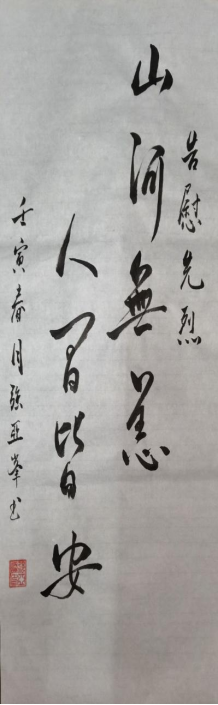 告慰先烈
山河無恙
人间皆安
壬寅春月張亚峯书